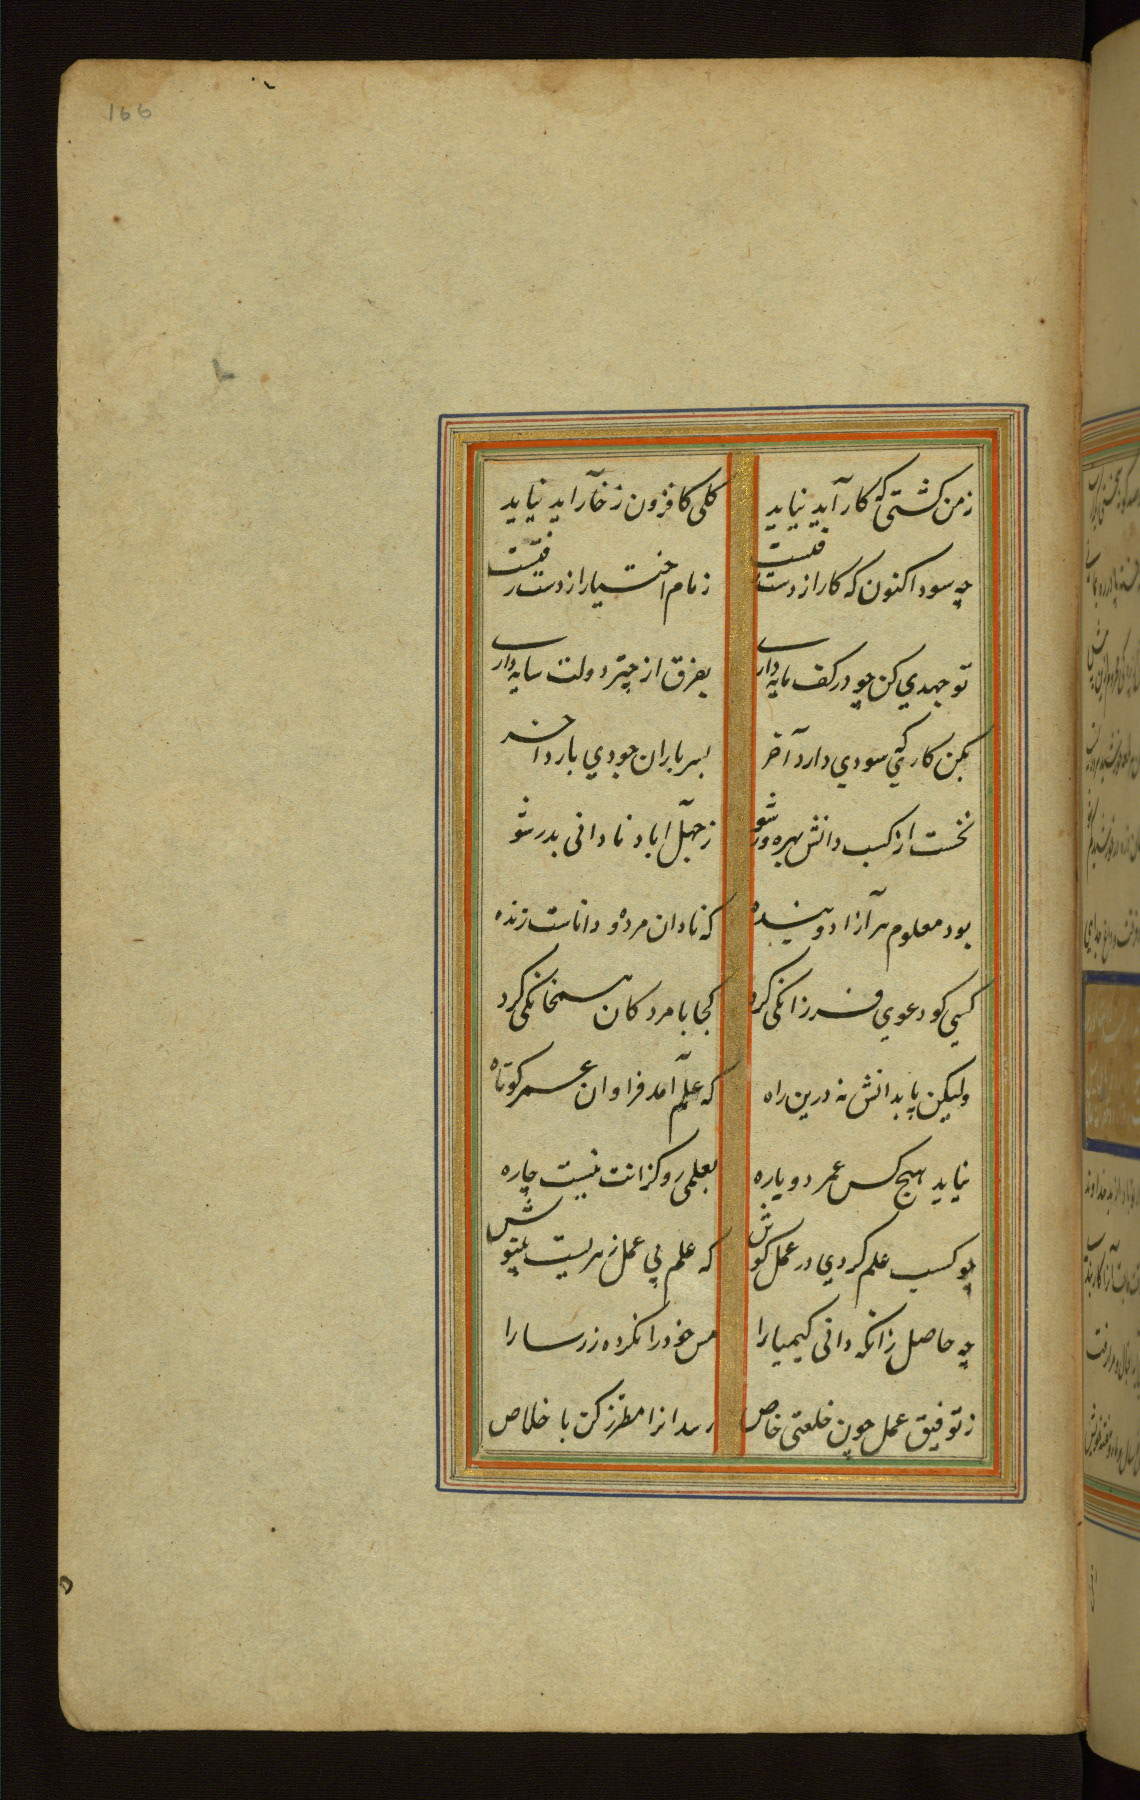 166
زمن کشتی که کار آید نیاید
کلی کافزون ز خار آید نیاید
چه سود اکنون که کار از دست رفتست
زمام اختیار از دست رفتست
تو جهدي کن چو در کف مایه داری
بفرق از چتر دولت سایه داری
بکن کاری که سودي دارد آخر
بسر باران جودي بارد آخر
نخست از کسب دانش بهره ور شو
ز جهل آباد نادانی بدر شو
بود معلوم هر آزاد و بنده
که نادان مرده و داناست زنده
کسی کو دعوي فرزانکی کرد
کجا با مردکان همخانکی کرد
ولیکن پا بدانش نه درین راه
که علم آمد فراوان عمر کوتاه
نیاید هیچ کس عمر دوباره
بعلمی رو کزانت نیست چاره
چو کسب علم کردي در عمل کوش
که علم بی عمل زهریست بینوش
چه حاصل زانکه دانی کیمیا را
مس خود را نکرده زر سارا
ز توفیق عمل چون خلعتی خاص
رسد انرا مطرز کن با خلاص